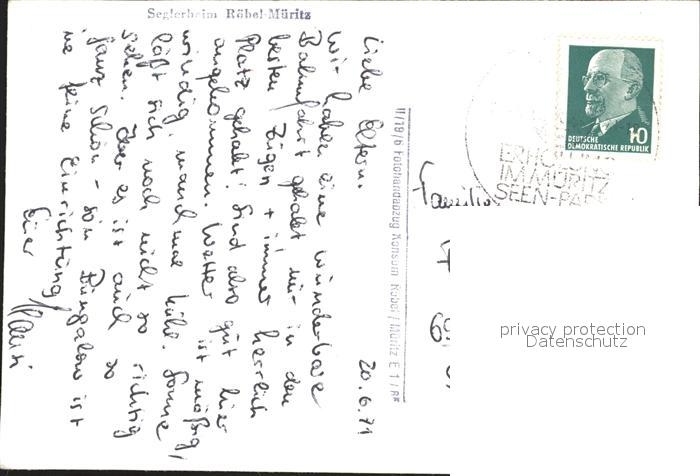 Seglerheim Röbel-Müritz
20.6.71
Liebe Eltern.
Wir haben eine wunderbare
Bahnfahrt gehabt nur in den
besten Zügen + immer herrlich
Platz gehabt! Sind also gut hier
angekommen. Wetter ist mäßig,
windig, manchmal kühl. Sonne
läßt sich noch nicht so richtig
sehen. Aber es ist auch so
ganz schön - so'n Bungalow ist
ne feine Einrichtung
Eier
II/19/6 Fotohandabzug Konsum Röbel/Müritz E 1/RF
DEUTSCHE
DEMOKRATISCHE REPUBLIK
10
ERHOLUNG
IM MÜRITZ
SEEN-PARK
Familie
privacy protection
Datenschutz